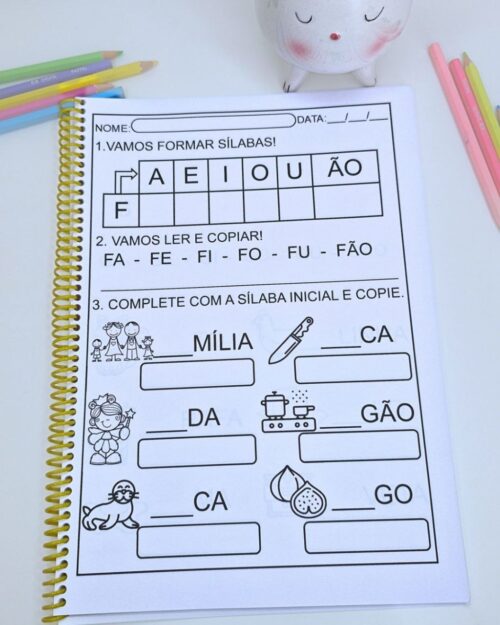 NOME: DATA:__/__/__
1.VAMOS FORMAR SÍLABAS!
A E I O U ÃO
F
2. VAMOS LER E COPIAR!
FA - FE - FI - FO - FU - FÃO
3. COMPLETE COM A SÍLABA INICIAL E COPIE.
___MÍLIA ___CA
___DA ___GÃO
___CA ___GO